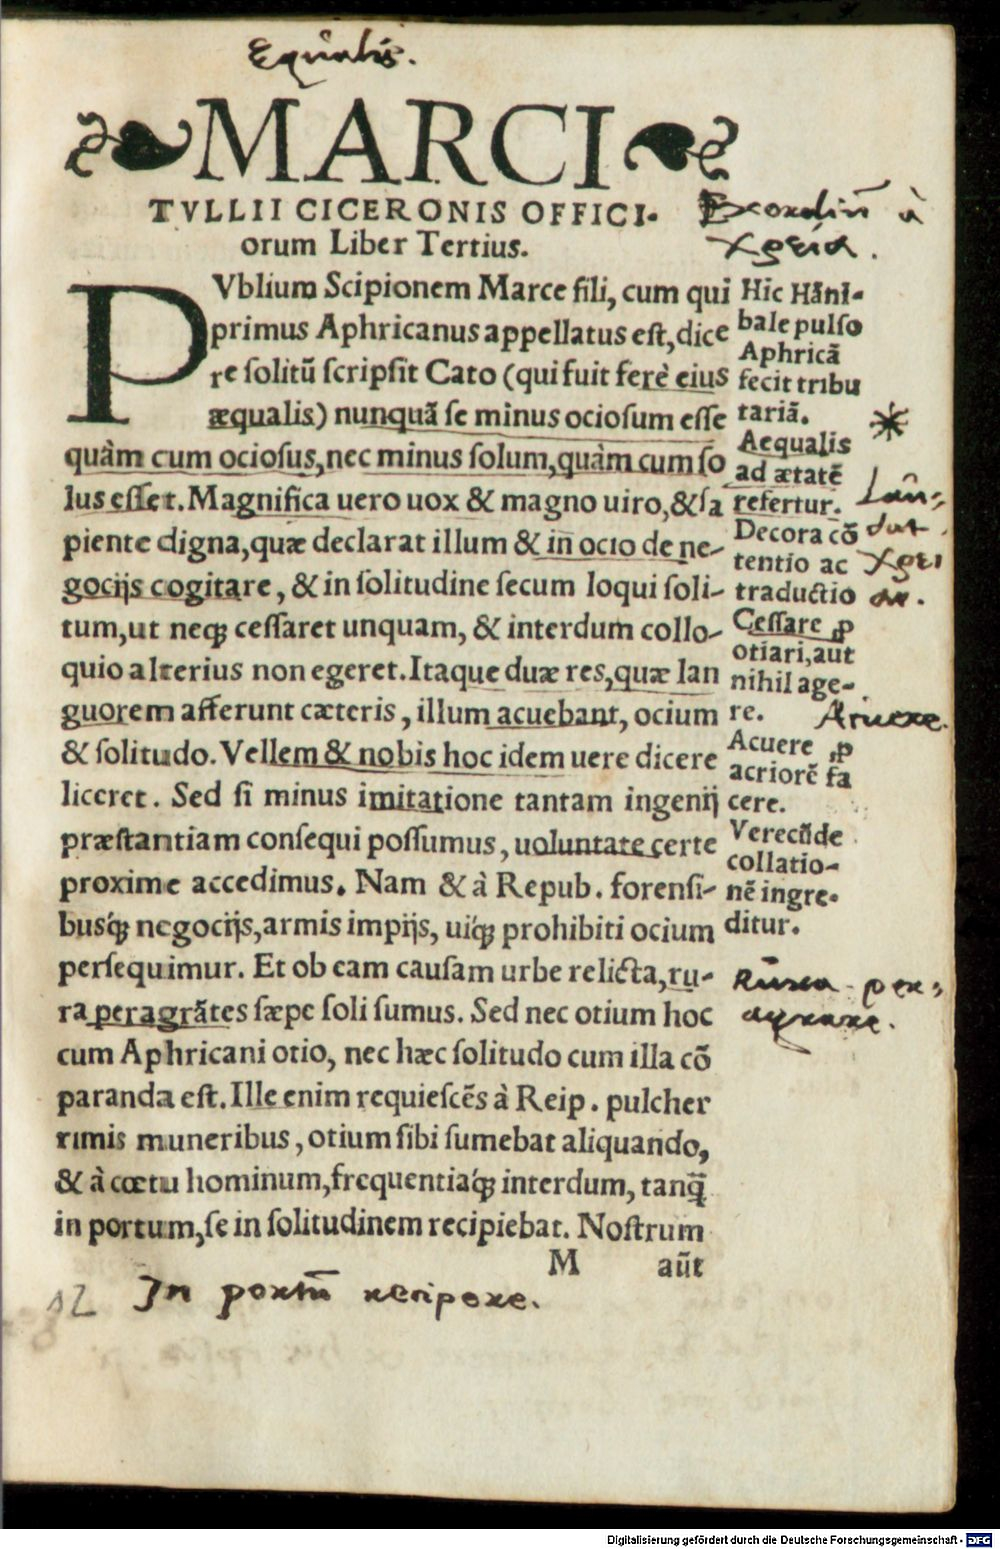 Equalis.
MARCI
TVLLII CICERONIS OFFICI-
orum Liber Tertius.
Exordiũ à
Chreia.
PVblium Scipionem Marce fili, cum qui
primus Aphricanus appellatus est, dice
re solitũ scripsit Cato (qui fuit ferè eius
æqualis) nunquã se minus ociosum esse
quàm cum ociosus, nec minus solum, quàm cum so
lus esset. Magnifica uero uox & magno uiro, & sa
piente digna, quæ declarat illum & in ocio de ne-
gocijs cogitare, & in solitudine secum loqui soli-
tum, ut neq; cessaret unquam, & interdum collo-
quio alterius non egeret. Itaque duæ res, quæ lan
guorem afferunt cæteris, illum acuebant, ocium
& solitudo. Vellem & nobis hoc idem uere dicere
liceret. Sed si minus imitatione tantam ingenij
præstantiam consequi possumus, uoluntate certe
proxime accedimus. Nam & à Repub. forensi-
busq́; negocijs, armis impijs, uiq́; prohibiti ocium
persequimur. Et ob eam causam urbe relicta, ru-
ra peragrãtes sæpe soli sumus. Sed nec otium hoc
cum Aphricani otio, nec hæc solitudo cum illa cõ
paranda est. Ille enim requiescẽs à Reip. pulcher
rimis muneribus, otium sibi sumebat aliquando,
& à cœtu hominum, frequentiaq́; interdum, tanq̃
in portum, se in solitudinem recipiebat. Nostrum
M aũt
Hic Hãni-
bale pulso
Aphricã
fecit tribu
tariã.
Aequalis
ad ætatẽ
refertur.
Decora cõ
tentio ac
traductio
Cessare ꝓ
otiari, aut
nihil age-
re.
Acuere ꝓ
acriorẽ fa
cere.
Verecũde
collatio-
nẽ ingre-
ditur.
Laũ-
dat
Chrei
am.
Acuere.
Rura per-
agrare.
In portũ recipere.
12
Digitalisierung gefördert durch die Deutsche Forschungsgemeinschaft - DFG